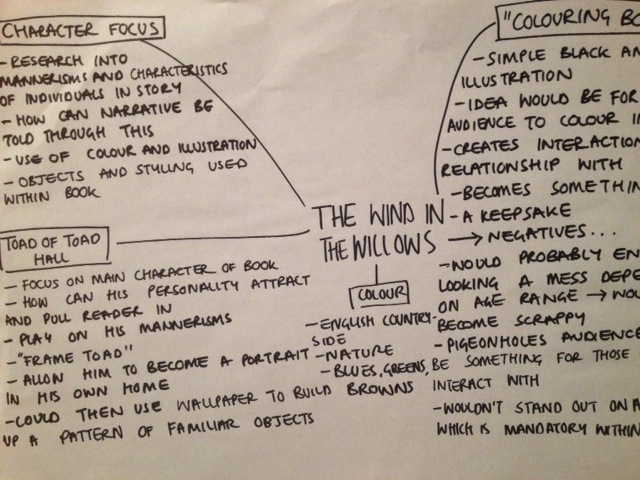 CHARACTER FOCUS
- RESEARCH INTO
MANNERISMS AND CHARACTERISTICS
OF INDIVIDUALS IN STORY
- HOW CAN NARRATIVE BE
TOLD THROUGH THIS
- USE OF COLOUR AND ILLUSTRATION
- OBJECTS AND STYLING USED
WITHIN BOOK
TOAD OF TOAD
HALL
- FOCUS ON MAIN CHARACTER OF BOOK
- HOW CAN HIS PERSONALITY ATTRACT
AND PULL READER IN
- PLAY ON HIS MANNERISMS
- "FRAME TOAD"
- ALLOW HIM TO BECOME A PORTRAIT
IN HIS OWN HOME
- COULD THEN USE WALLPAPER TO BUILD
UP A PATTERN OF FAMILIAR OBJECTS
THE WIND IN
THE WILLOWS
COLOUR
- ENGLISH COUNTRY-
SIDE
- NATURE
- BLUES, GREENS,
BROWNS
"COLOURING BO
- SIMPLE BLACK AN
ILLUSTRATION
- IDEA WOULD BE FOR
AUDIENCE TO COLOUR I
- CREATES INTERACTION
RELATIONSHIP WITH
- BECOMES SOMETHIN
- A KEEPSAKE
→ NEGATIVES...
- WOULD PROBABLY EN
LOOKING A MESS DEPE
ON AGE RANGE → WOU
BECOME SCRAPPY
- PIGEONHOLES AUDIENCE
BE SOMETHING FOR THOSE
INTERACT WITH
- WOULDN'T STAND OUT ON A
WHICH IS MANDATORY WITHIN